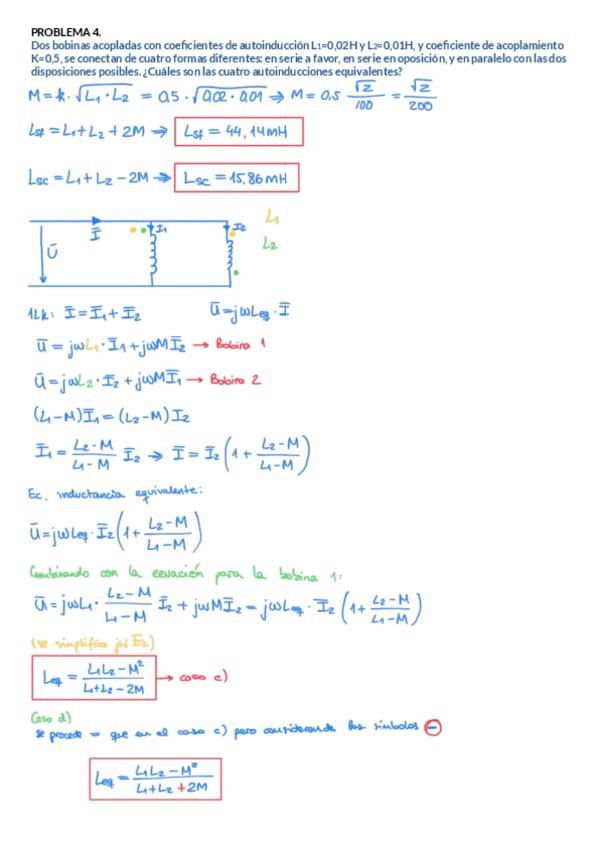 PROBLEMA 4.
Dos bobinas acopladas con coeficientes de autoinducción L1=0,02H y L2=0,01H, y coeficiente de acoplamiento
K=0,5, se conectan de cuatro formas diferentes: en serie a favor, en serie en oposición, y en paralelo con las dos
disposiciones posibles. ¿Cuáles son las cuatro autoinducciones equivalentes?
M = k · √(L1 · L2) = 0,5 · √(0,02 · 0,01) ⇒ M = 0,5 √2/100 = √2/200
Lsf = L1 + L2 + 2M ⇒ Lsf = 44,14mH
Lsc = L1 + L2 − 2M ⇒ Lsc = 15,86mH
Ī I1 I2 L1
Ū L2
1Lk: Ī = Ī1 + Ī2 Ū = jωLeq · Ī
Ū = jωL1 · Ī1 + jωMĪ2 → Bobina 1
Ū = jωL2 · Ī2 + jωMĪ1 → Bobina 2
(L1−M)Ī1 = (L2−M) I2
Ī1 = (L2−M)/(L1−M) Ī2 → Ī = Ī2 (1 + (L2−M)/(L1−M))
Ec. inductancia equivalente:
Ū = jωLeq · Ī2 (1 + (L2−M)/(L1−M))
Combinando con la ecuación para la bobina 1:
Ū = jωL1 · (L2−M)/(L1−M) Ī2 + jωMĪ2 = jωLeq · Ī2 (1 + (L2−M)/(L1−M))
(se simplifica
Leq = (L1L2 − M²)/(L1+L2−2M) → caso c)
Caso d)
se procede = que en el caso c) pero considerando los símbolos −
Leq = (L1L2 − M²)/(L1+L2+2M)